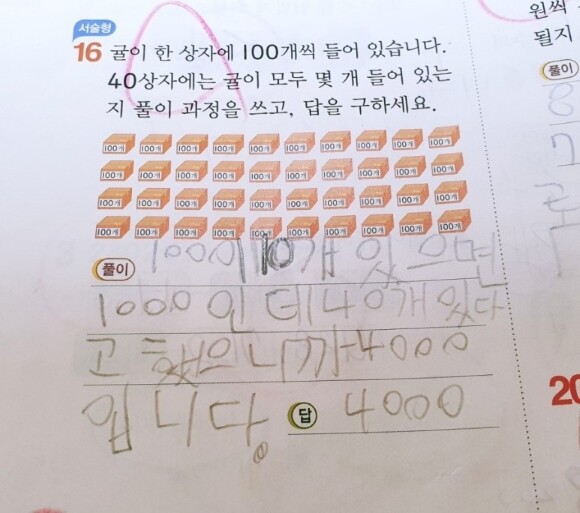 서술형
16 귤이 한 상자에 100개씩 들어 있습니다.
40상자에는 귤이 모두 몇 개 들어 있는
지 풀이 과정을 쓰고, 답을 구하세요.
100개 100개 100개 100개 100개 100개 100개 100개 100개 100개
100개 100개 100개 100개 100개 100개 100개 100개 100개 100개
100개 100개 100개 100개 100개 100개 100개 100개 100개 100개
100개 100개 100개 100개 100개 100개 100개 100개 100개 100개
풀이 100이 10개 있으면
1000인데 40개 있다
고 했으니까 4000
입니다.
답 4000
원씩
될지
풀이
20